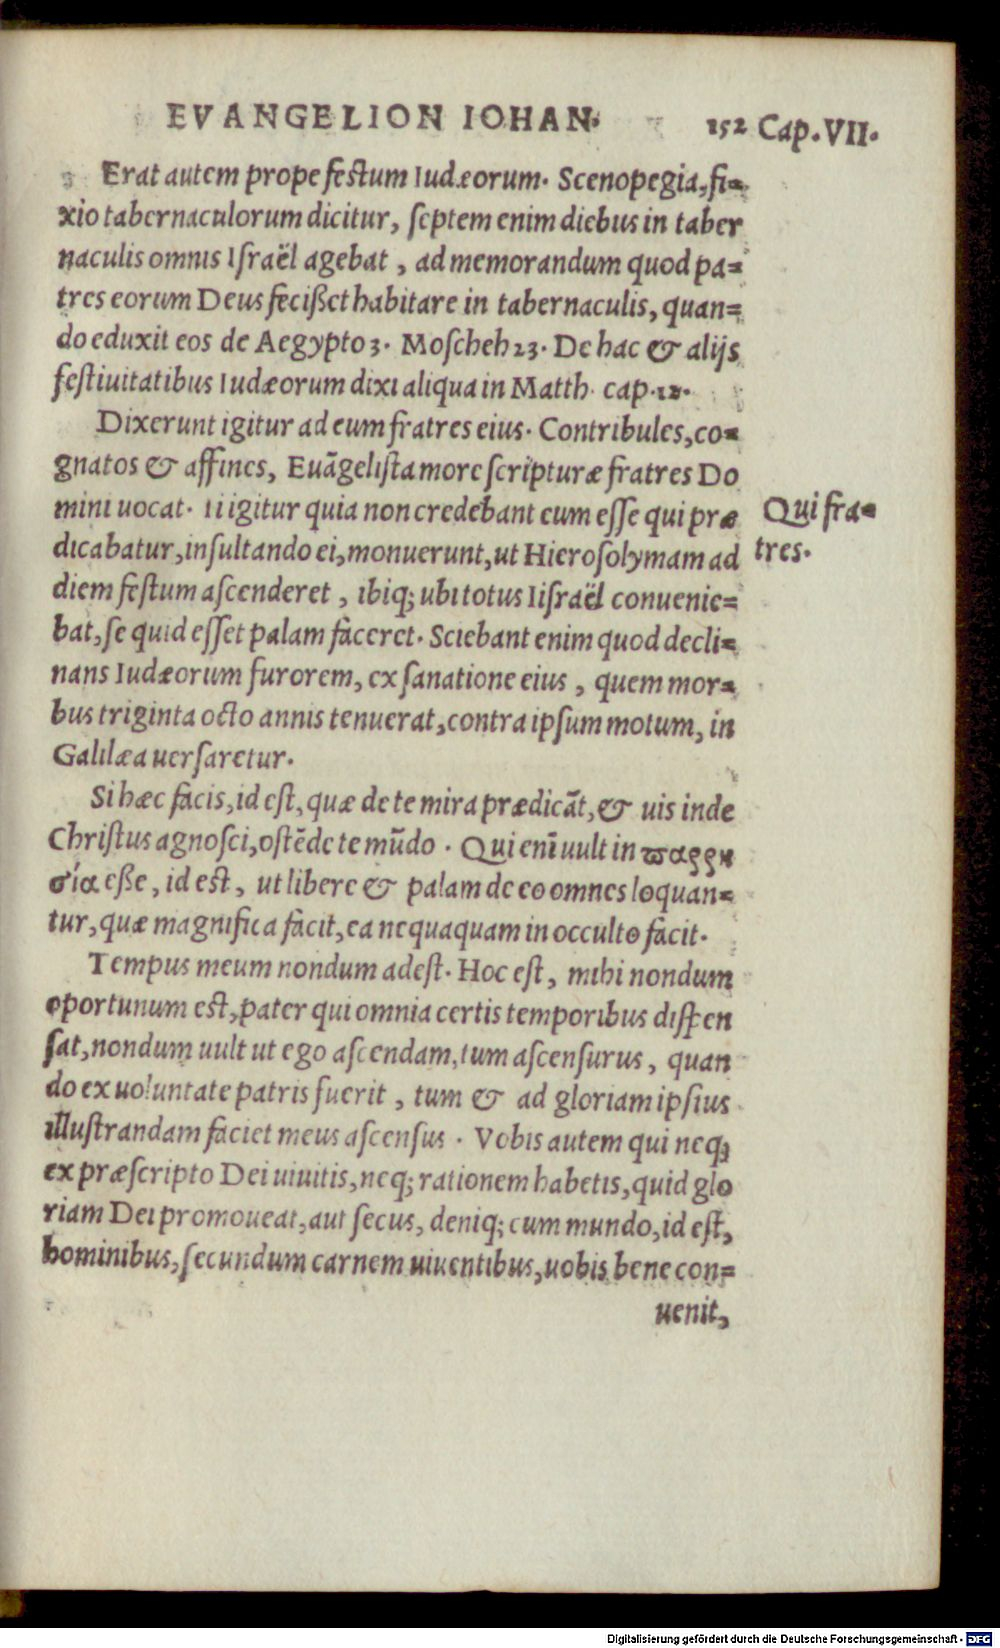 EVANGELION IOHAN. 152 Cap.VII.
Erat autem prope festum Iudæorum. Scenopegia, fi=
xio tabernaculorum dicitur, septem enim diebus in taber
naculis omnis Israël agebat, ad memorandum quod pa=
tres eorum Deus fecißet habitare in tabernaculis, quan=
do eduxit eos de Aegypto 3. Moscheh 23. De hac & alijs
festiuitatibus Iudæorum dixi aliqua in Matth. cap. 12.
Dixerunt igitur ad eum fratres eius. Contribules, co=
gnatos & affines, Euãgelista more scripturæ fratres Do
mini uocat. Ii igitur quia non credebant eum esse qui præ
dicabatur, insultando ei, monuerunt, ut Hierosolymam ad
diem festum ascenderet, ibiq; ubi totus Iisraël conuenie=
bat, se quid esset palam faceret. Sciebant enim quod decli=
nans Iudæorum furorem, ex sanatione eius, quem mor=
bus triginta octo annis tenuerat, contra ipsum motum, in
Galilæa uersaretur.
Qui fra=
tres.
Si hæc facis, id est, quæ de te mira prædicãt, & uis inde
Christus agnosci, ostẽde te mũdo. Qui enĩ uult in ϖαρρη
σία eße, id est, ut libere & palam de eo omnes loquan=
tur, quæ magnifica facit, ea nequaquam in occulto facit.
Tempus meum nondum adest. Hoc est, mihi nondum
oportunum est, pater qui omnia certis temporibus dispen
sat, nondum uult ut ego ascendam, tum ascensurus, quan
do ex uoluntate patris fuerit, tum & ad gloriam ipsius
illustrandam faciet meus ascensus. Vobis autem qui neq;
ex præscripto Dei uiuitis, neq; rationem habetis, quid glo
riam Dei promoueat, aut secus, deniq; cum mundo, id est,
hominibus, secundum carnem uiuentibus, uobis bene con=
uenit,
Digitalisierung gefördert durch die Deutsche Forschungsgemeinschaft - DFG